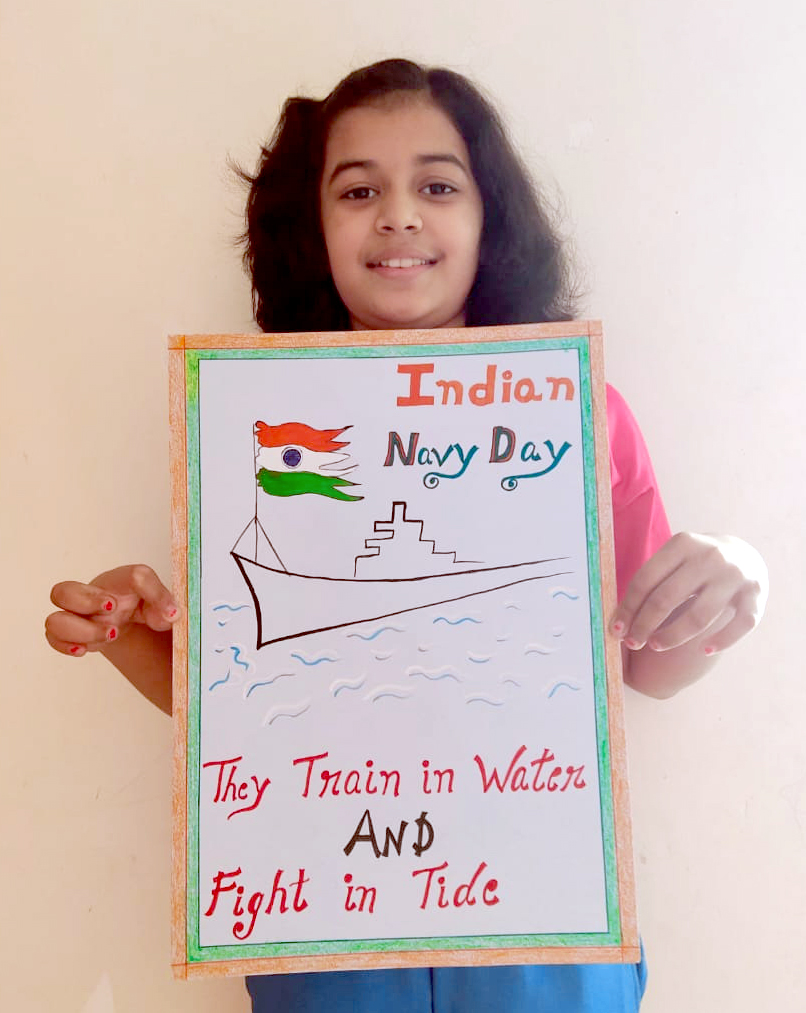 Indian
Navy Day
They Train in Water
AND
Fight in Tide